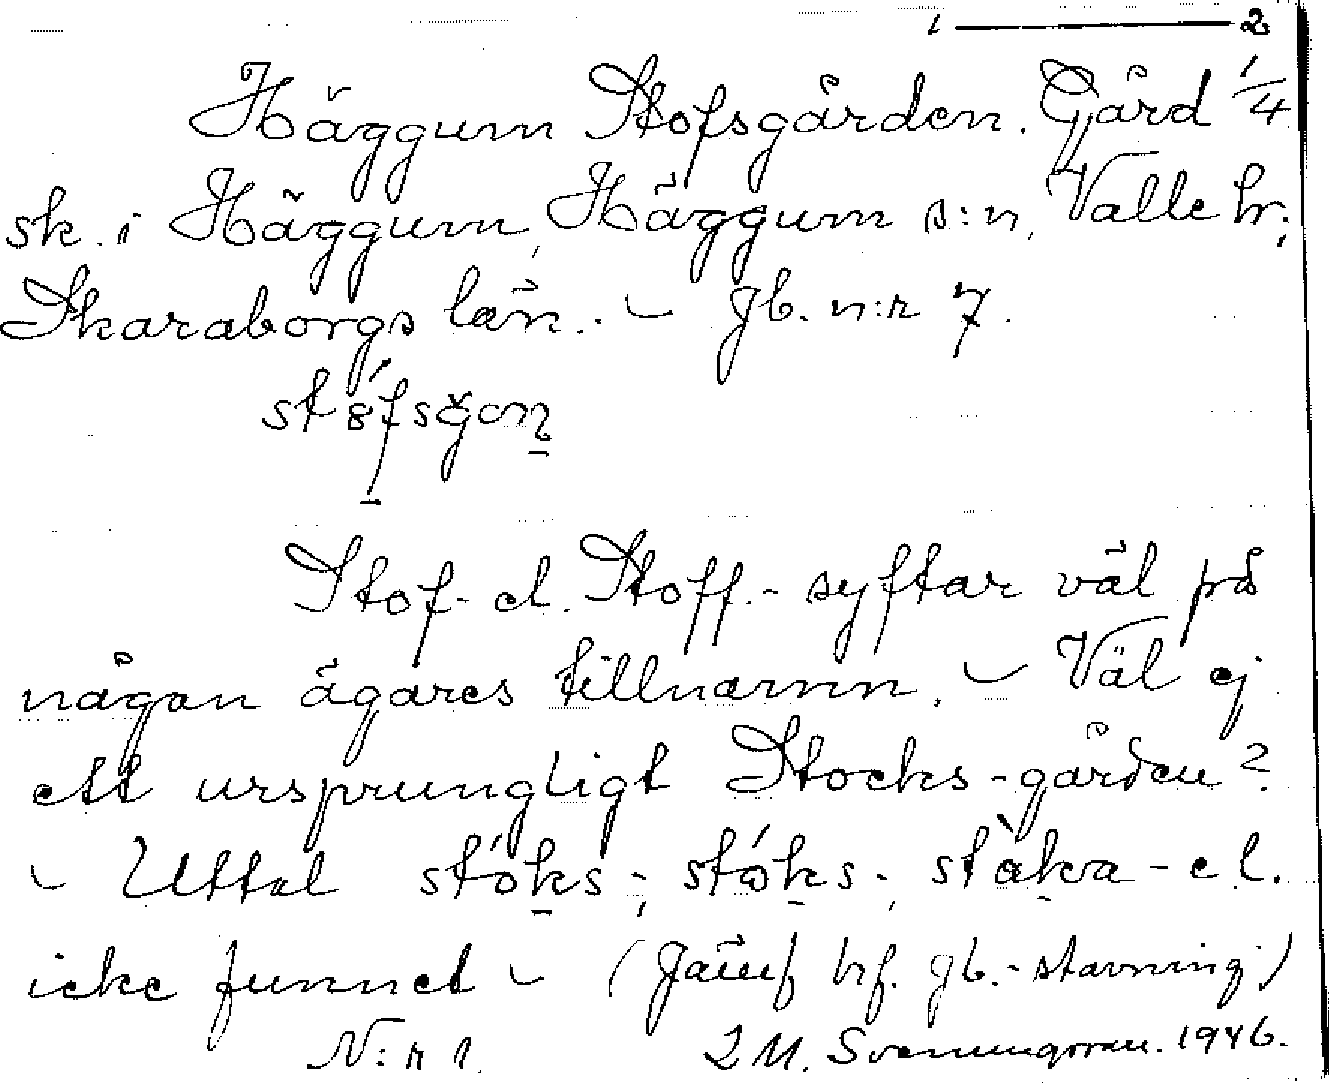 1 — 2
Häggum Stofsgården. Gård 1/4
sk. i Häggum, Häggum s:n, Valle hr;
Skaraborgs län. - Jb. n:r 7.
Stof- el. Stoff.- syftar väl på
någon ägares tillnamn. - Väl ej
ett ursprungligt Stocks-gården?
- Uttal stóks-; stóks-, stàkva- el.
icke funnet - (Jämf hrf. jb.-stavning)
N:r 1. I M. Svenungsson. 1946.